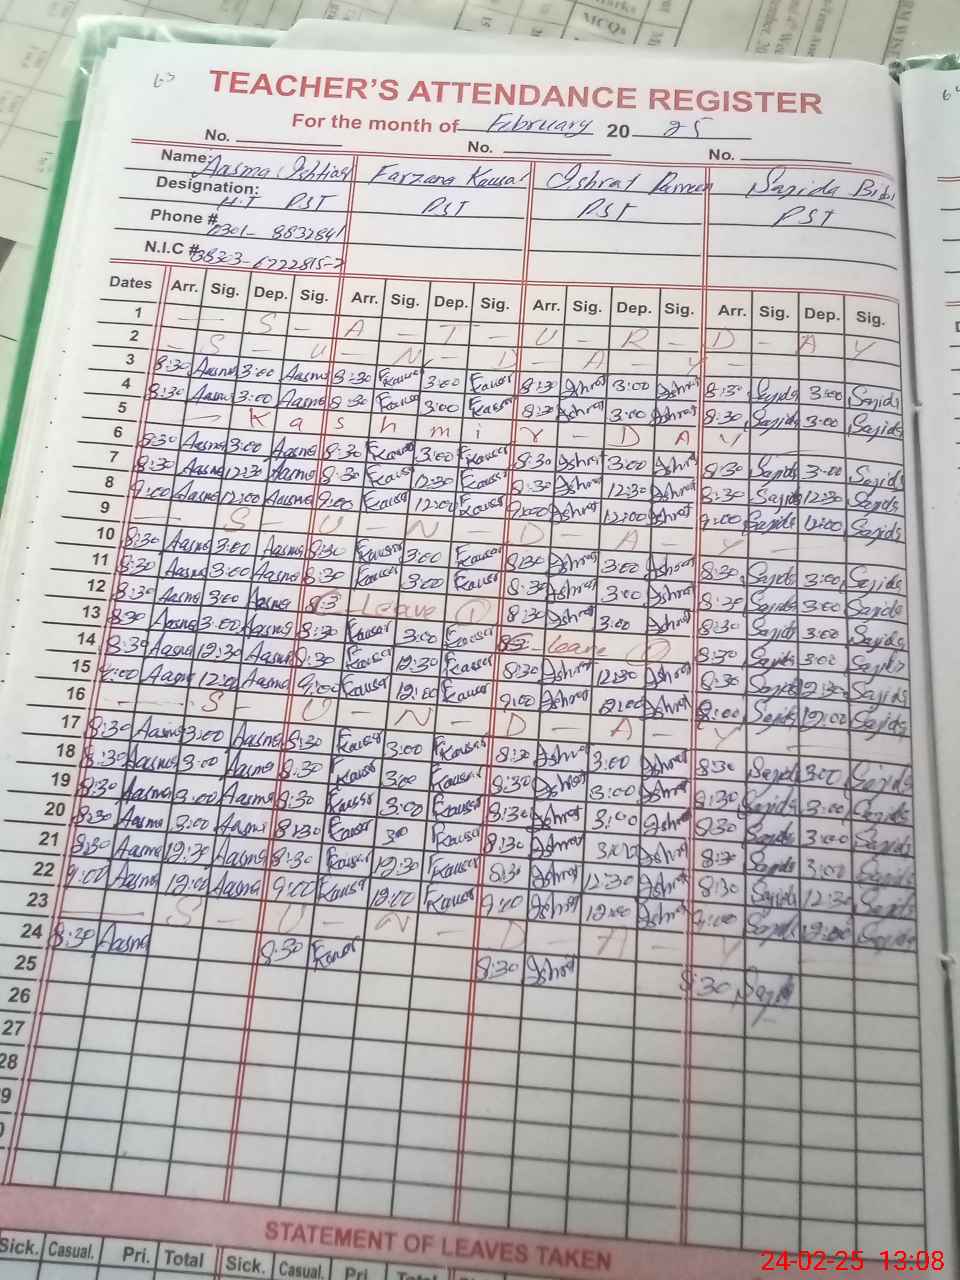 63
TEACHER'S ATTENDANCE REGISTER
For the month of February 2025
No. No. No.
Name: Aasma Ishtiaq Farzana Kausar Ishrat Parveen Sajida Bibi
Designation: H.T PST PST PST PST
Phone # 0301-8832841
N.I.C # 38303-6722815-2
Dates Arr. Sig. Dep. Sig. Arr. Sig. Dep. Sig. Arr. Sig. Dep. Sig. Arr. Sig. Dep. Sig.
1 - S - A - T - U - R - D - A - Y
2 - S - U - N - D - A - Y
3 8:30 Aasma 3:00 Aasma 8:30 Kausar 3:00 Kausar 8:30 Ishrat 3:00 Ishrat 8:30 Sajida 3:00 Sajida
4 8:30 Aasma 3:00 Aasma 8:30 Kausar 3:00 Kausar 8:30 Ishrat 3:00 Ishrat 8:30 Sajida 3:00 Sajida
5 - K a s h m i r - D A Y
6 8:30 Aasma 3:00 Aasma 8:30 Kausar 3:00 Kausar 8:30 Ishrat 3:00 Ishrat 8:30 Sajida 3:00 Sajida
7 8:30 Aasma 12:30 Aasma 8:30 Kausar 12:30 Kausar 8:30 Ishrat 12:30 Ishrat 8:30 Sajida 12:30 Sajida
8 9:00 Aasma 12:00 Aasma 9:00 Kausar 12:00 Kausar 9:00 Ishrat 12:00 Ishrat 9:00 Sajida 12:00 Sajida
9 - S - U - N - D - A - Y -
10 8:30 Aasma 3:00 Aasma 8:30 Kausar 3:00 Kausar 8:30 Ishrat 3:00 Ishrat 8:30 Sajida 3:00 Sajida
11 8:30 Aasma 3:00 Aasma 8:30 Kausar 3:00 Kausar 8:30 Ishrat 3:00 Ishrat 8:30 Sajida 3:00 Sajida
12 8:30 Aasma 3:00 Aasma Leave 1 8:30 Ishrat 3:00 Ishrat 8:30 Sajida 3:00 Sajida
13 8:30 Aasma 3:00 Aasma 8:30 Kausar 3:00 Kausar leave 8:30 Sajida 3:00 Sajida
14 8:30 Aasma 12:30 Aasma 8:30 Kausar 12:30 Kausar 8:30 Ishrat 12:30 Ishrat 8:30 Sajida 12:30 Sajida
15 9:00 Aasma 12:00 Aasma 9:00 Kausar 12:00 Kausar 9:00 Ishrat 12:00 Ishrat 9:00 Sajida 12:00 Sajida
16 - S - U - N - D - A - Y
17 8:30 Aasma 3:00 Aasma 8:30 Kausar 3:00 Kausar 8:30 Ishrat 3:00 Ishrat 8:30 Sajida 3:00 Sajida
18 8:30 Aasma 3:00 Aasma 8:30 Kausar 3:00 Kausar 8:30 Ishrat 3:00 Ishrat 8:30 Sajida 3:00 Sajida
19 8:30 Aasma 3:00 Aasma 8:30 Kausar 3:00 Kausar 8:30 Ishrat 3:00 Ishrat 8:30 Sajida 3:00 Sajida
20 8:30 Aasma 3:00 Aasma 8:30 Kausar 300 Kausar 8:30 Ishrat 3:00 Ishrat 8:30 Sajida 3:00 Sajida
21 8:30 Aasma 12:30 Aasma 8:30 Kausar 12:30 Kausar 8:30 Ishrat 12:30 Ishrat 8:30 Sajida 12:30 Sajida
22 9:00 Aasma 12:00 Aasma 9:00 Kausar 12:00 Kausar 9:00 Ishrat 12:00 Ishrat 9:00 Sajida 12:00 Sajida
23 - S - U - N - D - A - Y
24 8:30 Aasma 8:30 Kausar 8:30 Ishrat 8:30 Sajida
25
26
27
28
STATEMENT OF LEAVES TAKEN
Sick. Casual. Pri. Total Sick. Casual. Pri. Total
24-02-25 13:08